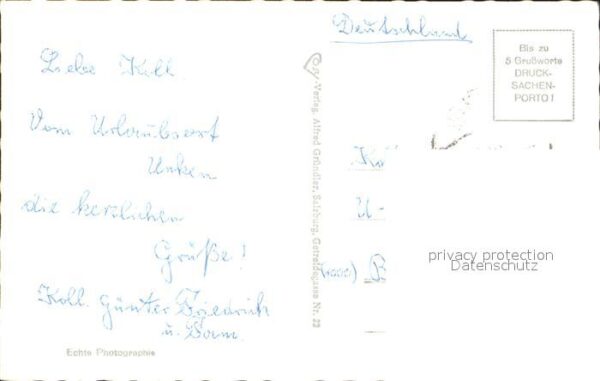 Liebe Koll.
Vom Urlaubsort
Unken
die herzlichen
Grüße!
Koll. Günter Friedrich
u. Dam.
Echte Photographie
Cosy-Verlag Alfred Gründler, Salzburg, Getreidegasse Nr. 22
Deutschland
Bis zu
5 Grußworte
DRUCK-
SACHEN-
PORTO!
Ko
U-
B
privacy protection
Datenschutz